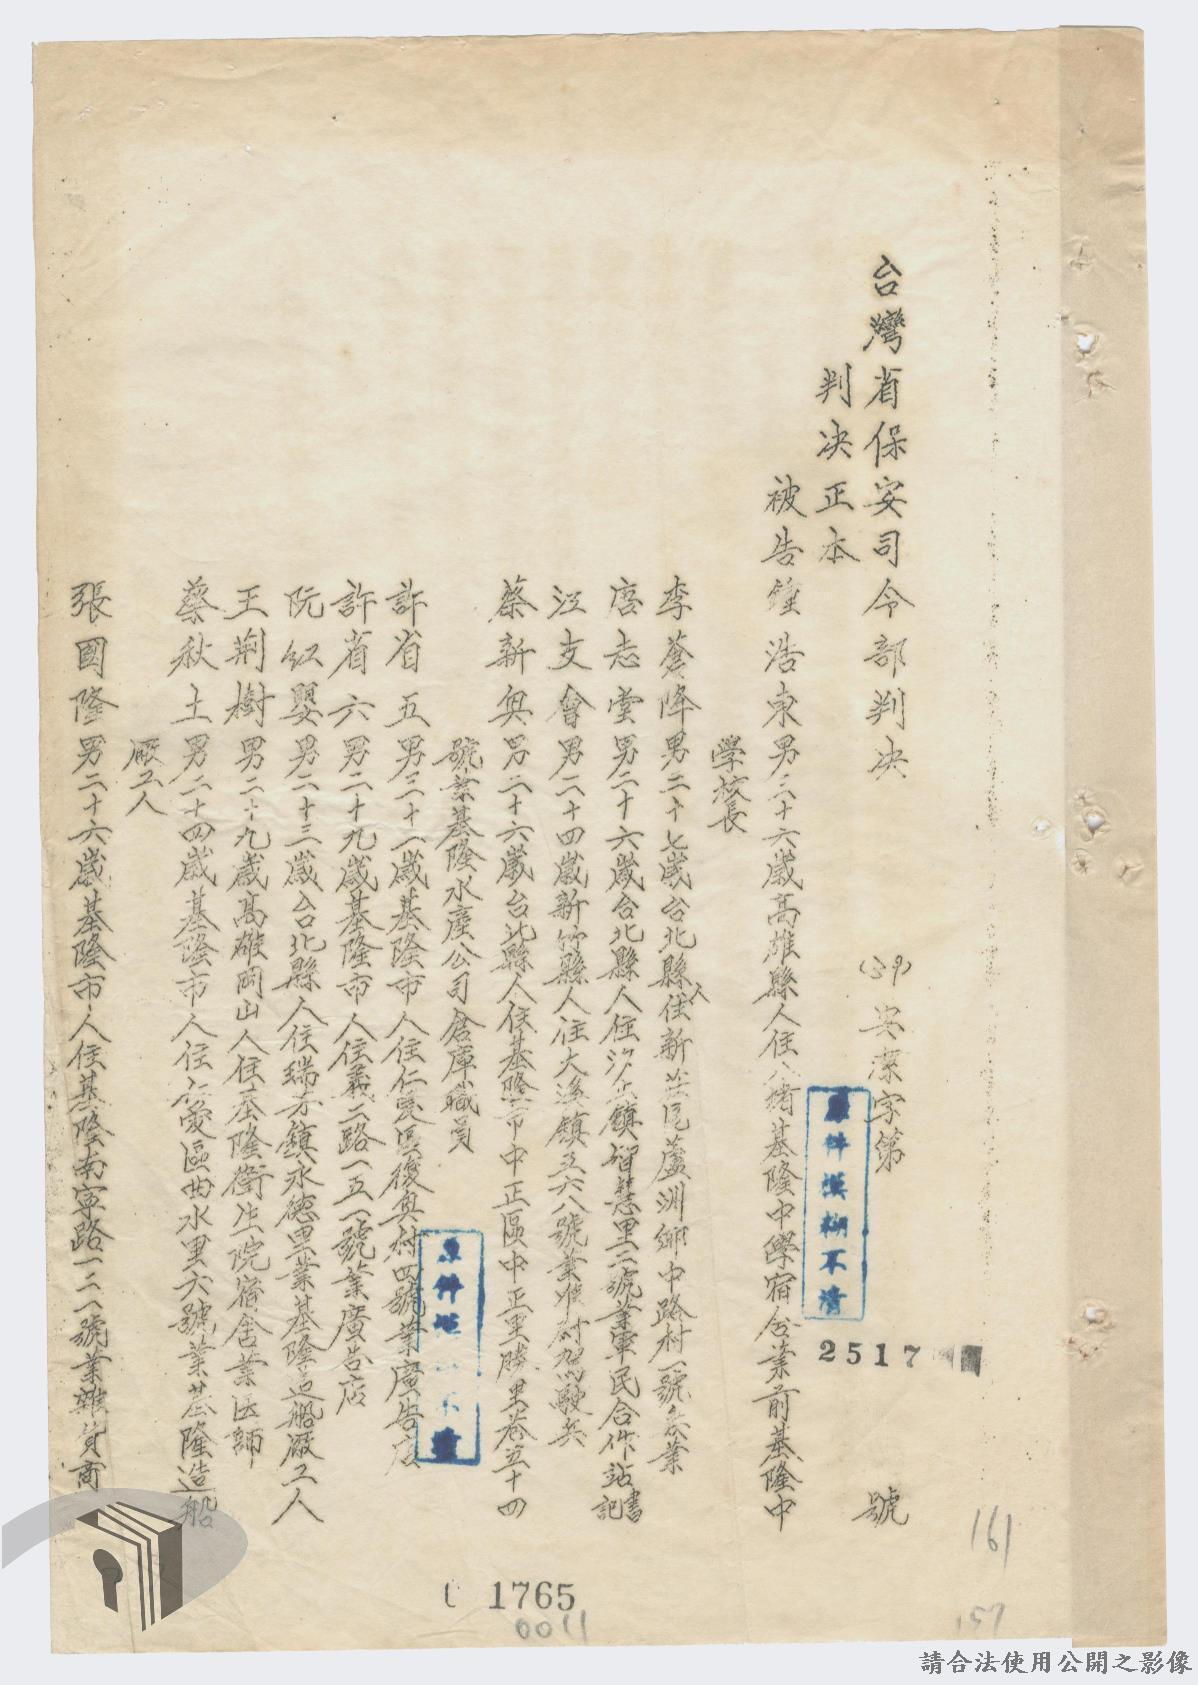 台灣省保安司令部判决
(39)安潔字第
2517
號
判决正本
被告鍾浩東男三十六歲高雄縣人住八堵基隆中學宿舍業前基隆中
學校長
李蒼降男二十七歲台北縣人住新莊區蘆洲鄉中路村一號無業
唐志堂男二十六歲台北縣人住汐止鎮智慧里二號業軍民合作站書記
江支會男二十四歲新竹縣人住大溪鎮五六八號業准尉駕駛兵
蔡新興男二十六歲台北縣人住基隆市中正區中正里勝里巷五十四
號業基隆水產公司倉庫職員
許省五男三十一歲基隆市人住仁愛區復興村四號業廣告店
許省六男二十九歲基隆市人住義二路一五一號業廣告店
阮紅嬰男二十三歲台北縣人住瑞芳鎮永德里業基隆造船廠工人
王荊樹男二十九歲高雄岡山人住基隆衛生院宿舍業医師
蔡秋土男二十四歲基隆市人住仁愛區曲水里六號業基隆造船
廠工人
張國隆男二十六歲基隆市人住基隆南寧路一二一號業雜貨商
原件模糊不清
原件模 不清
161
157
1765
0011
請合法使用公開之影像